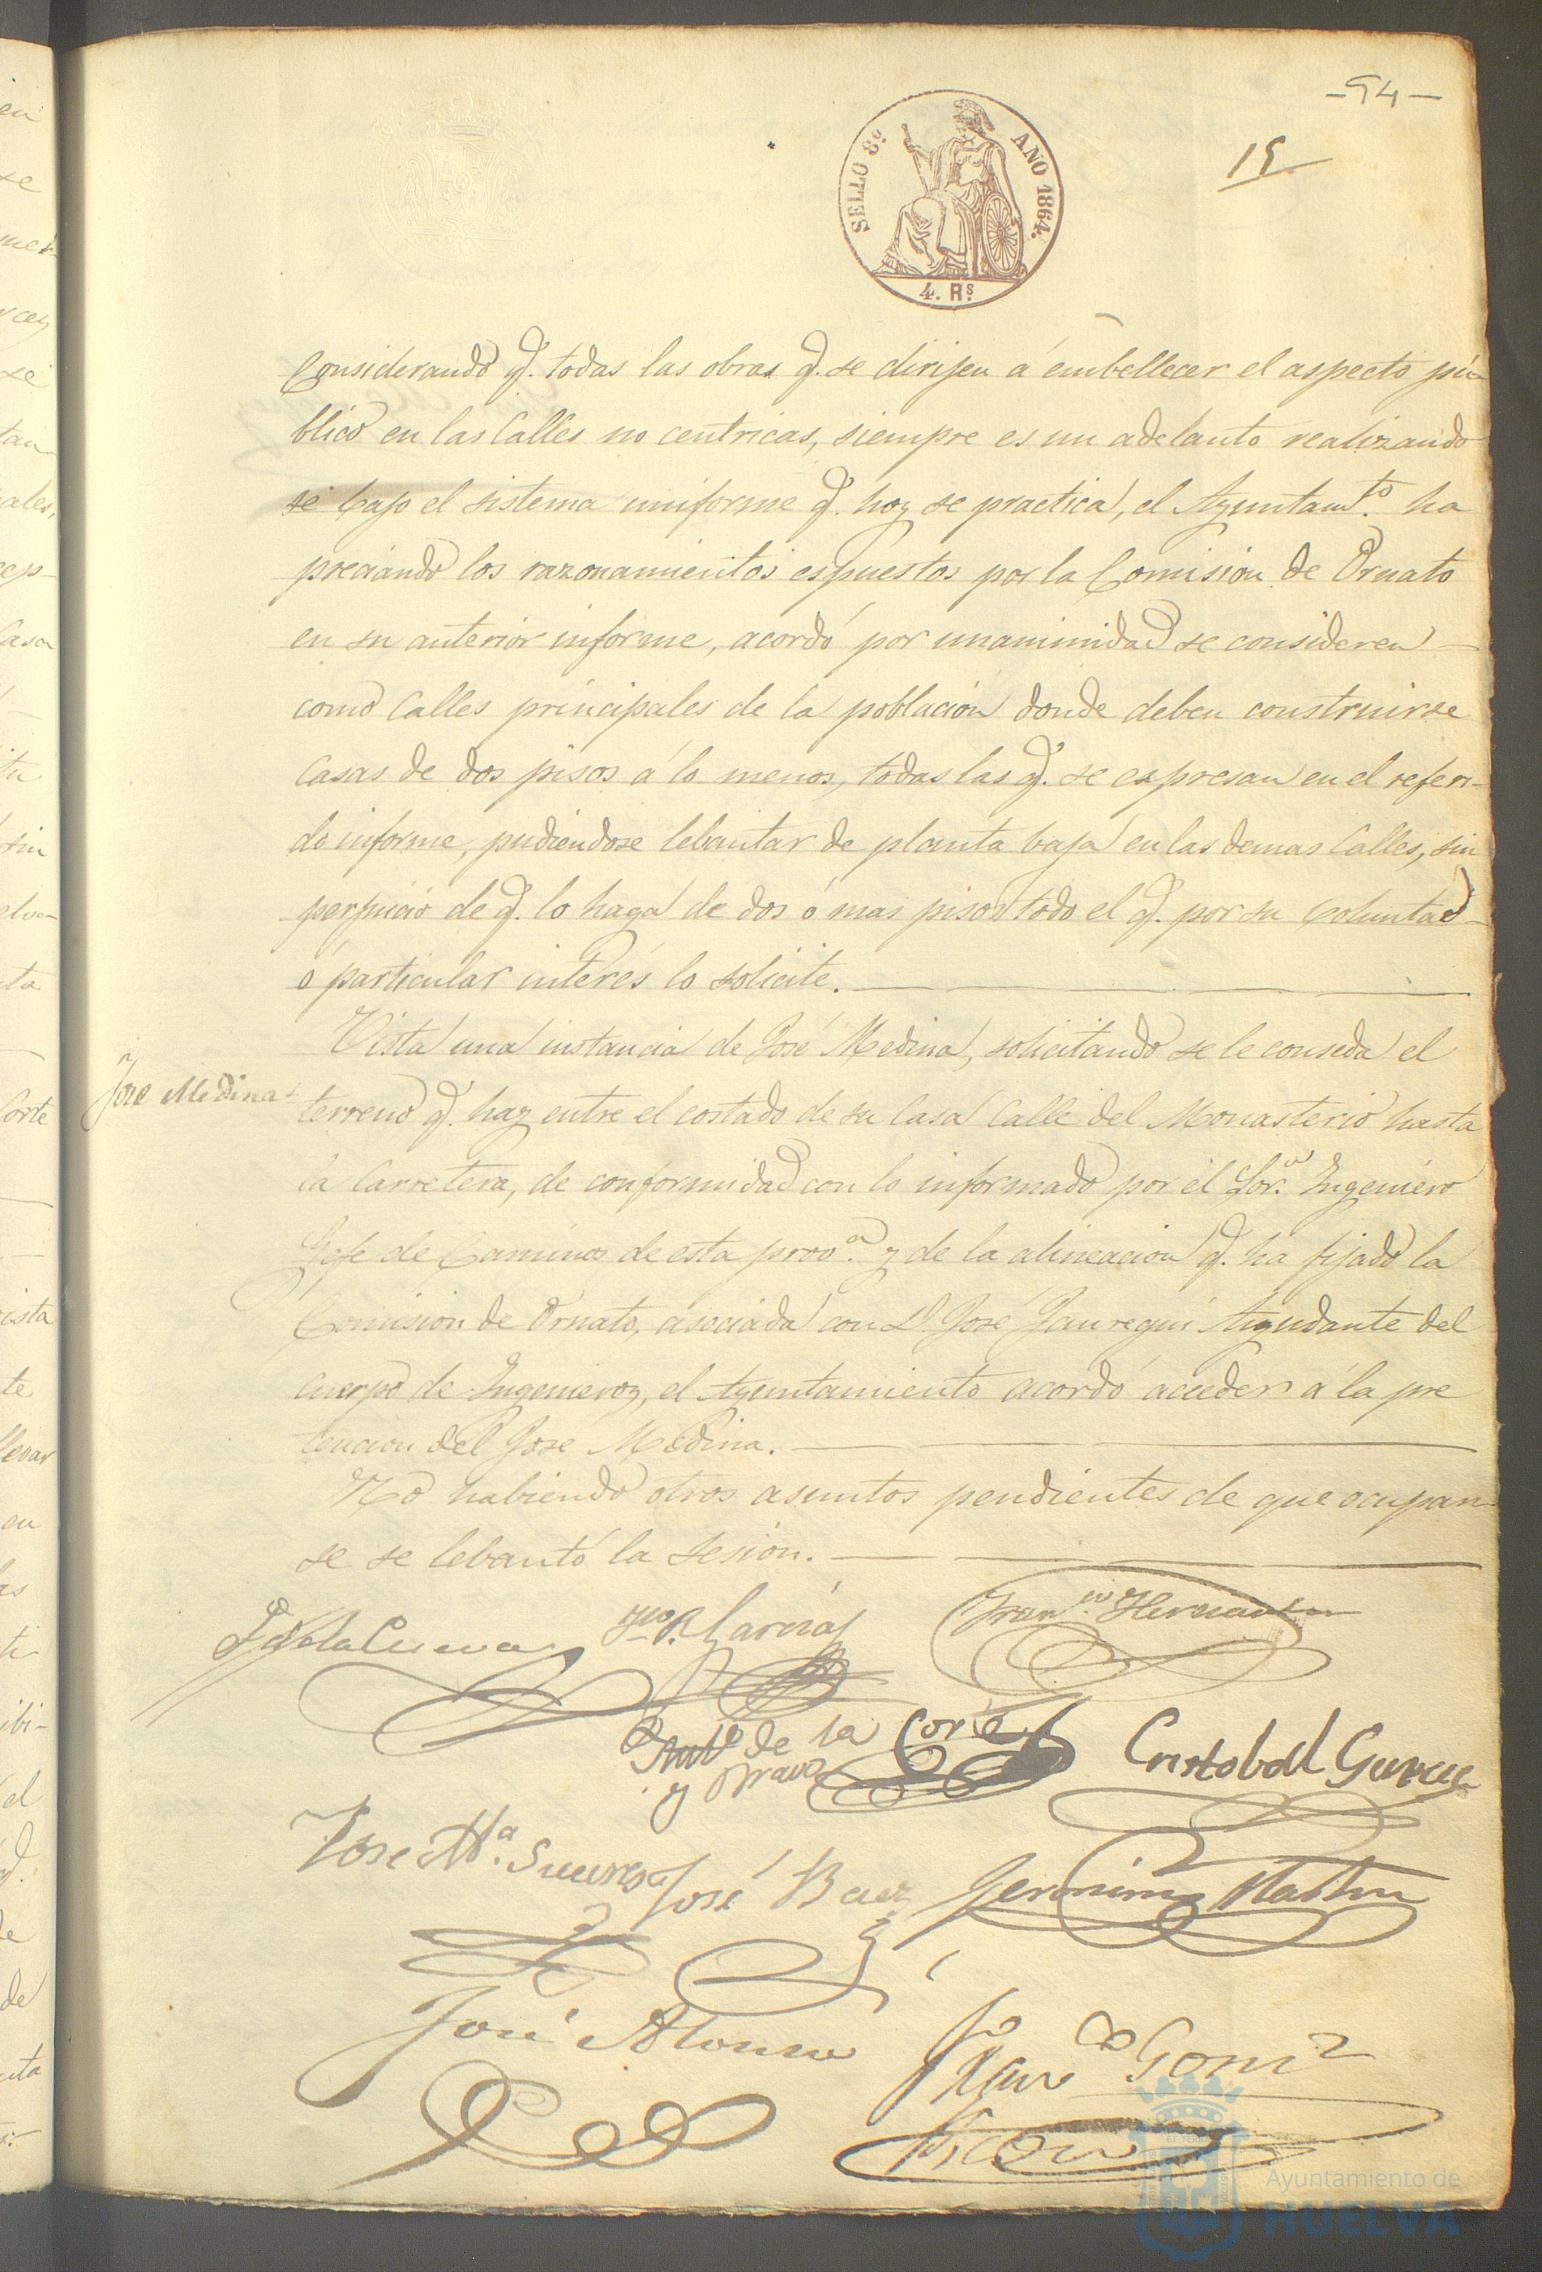 -94-
15
SELLO 8º AÑO 1864.
4. Rs
Considerando q. todas las obras q. se dirijen á embellecer el aspecto pú
blico en las Calles no centricas, siempre es un adelanto realizando
se bajo el sistema uniforme q. hoy se practica, el Ayuntamto. ha
preciando los razonamientos espuestos por la Comision de Ornato
en su anterior informe, acordó por unanimidad se consideren
como Calles principales de la poblacion donde deben construirse
Casas de dos pisos á lo menos, todas las q. se expresan en el referi-
do informe, pudiendose lebantar de planta baja en las demas Calles, sin
perjuicio de q. lo haga de dos ó mas pisos todo el q. por su Coluntad
o particular interés lo solicite.
Vista una instancia de José Medina, solicitando se le conseda el
Jose Medina
terreno q. hay entre el costado de su Casa Calle del Monasterio hasta
la Carretera, de conformidad con lo informado por el Sor. Ingeniero
Gefe de Caminos de esta prova. y de la alineacion q. ha fijado la
Comision de Ornato, asociada con D. José Jauregui Ayudante del
Cuerpo de Ingenieros, el Ayuntamiento acordó acceder á la pre
tencion del Jose Medina.
No habiendo otros asuntos pendientes de que ocupar
se se lebantó la Sesion.
de la Cueva
Garcia
Franco. Hernandez
Anto de la Corte
y Bravo
Cristobal Garcia
Jose Ma. Suarez
José Baez
Geronimo Martin
José Alonso
Franco Gomez
Ayuntamiento de
HUELVA